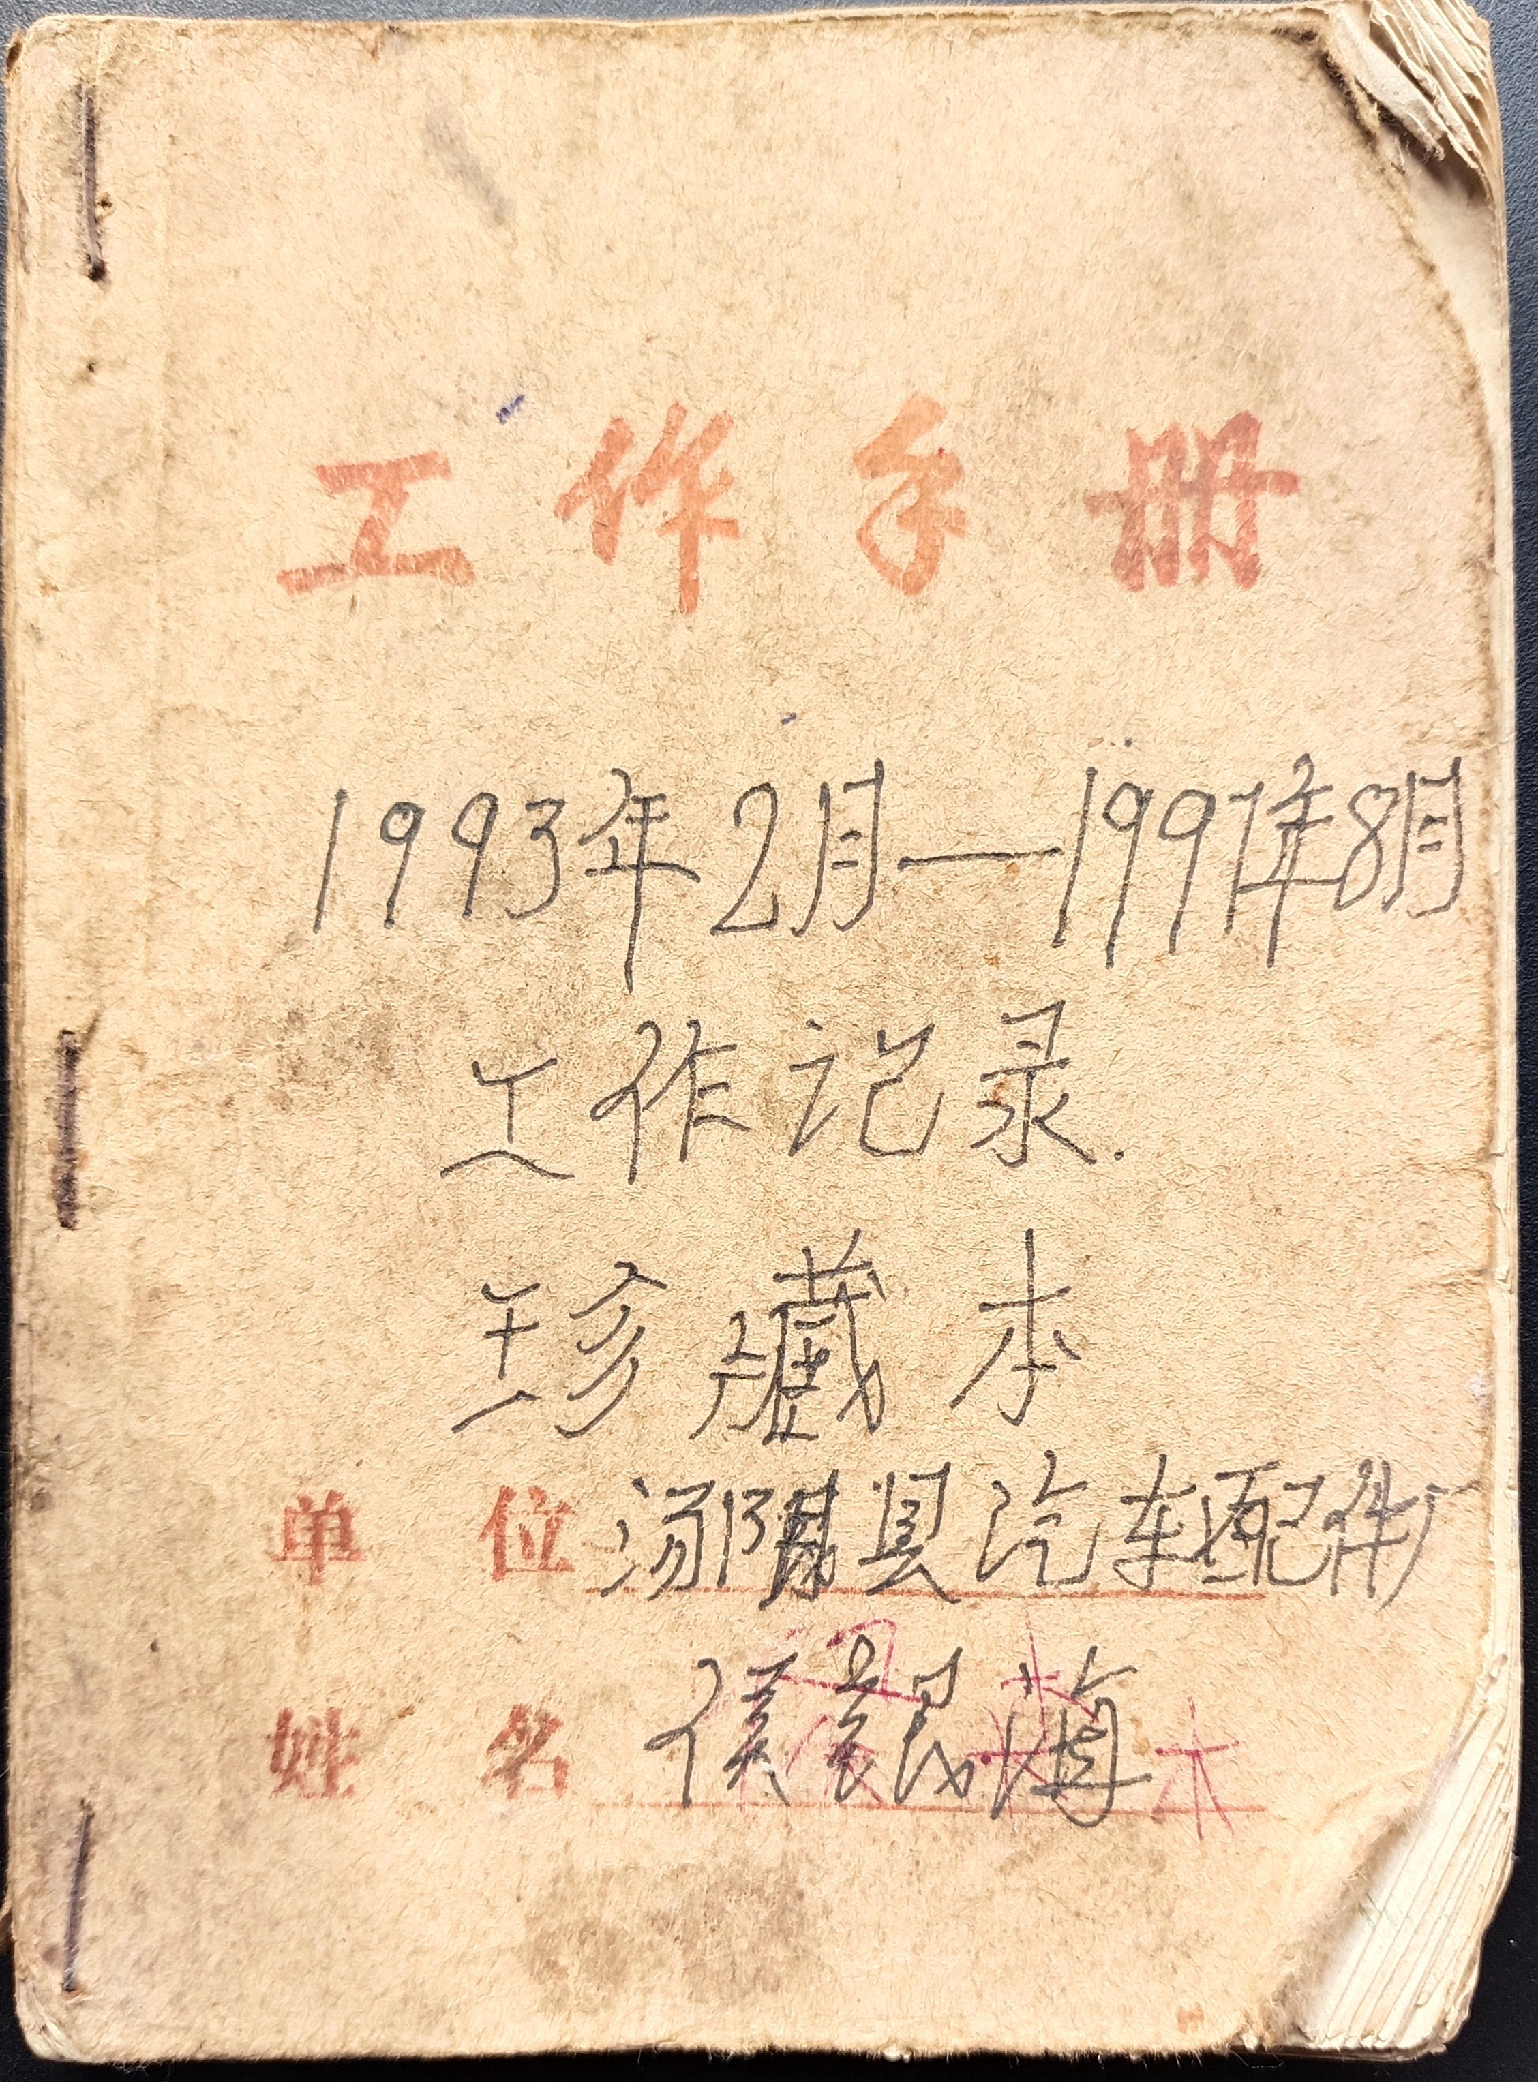 工作手册
1993年2月—1997年8月
工作记录.
珍藏本
单位 汤阴县汽车配件厂
姓名 侯銀